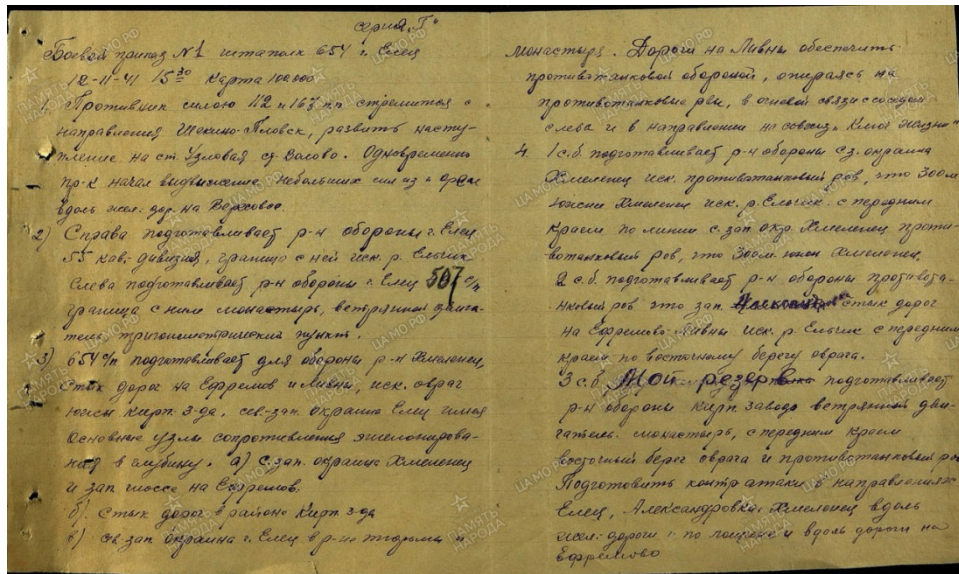 серия "Г"
Боевой приказ №1 штаполк 654 г. Елец
12-11-41 15 30 Карта 100.000
1. Противник силою 112 и 167 пп стремится с
направления Щекино-Пловск, развить насту-
пление на ст. Узловая ст. Волово. Одновременно
пр-к начал выдвижение небольших сил из г. Орел
вдоль жел. дор. на Верховье.
2) Справа подготавливает р-н обороны г. Елец
55 кав. дивизия, граница с ней иск. р. Ельчик
Слева подготавливает р-н обороны г. Елец 507 с/п
граница с ним монастырь, ветрянный двига-
тель, тригонометрический пункт.
3) 654 с/п подготавливает для обороны р-н Хмеленец,
стык дорог на Ефремов и Ливны, иск. овраг
южнее кирп. з-да, сев-зап. окраина Елец имея
основные узлы сопротивления эшелонирова-
ния в глубину. а) с. зап. окраина Хмеленец
и зап шоссе на Ефремов.
б) Стык дорог в районе Кирп. з-да
в) св. зап. окраина г. Елец в р-не тюрьмы и
монастыря. Дороги на Ливны обеспечить
противотанковой обороной, опираясь на
противотанковые рвы, в огневой связи с соседом
слева и в направлении на совхоз "Ключ жизни"
4. 1 с.б. подготавливает р-н обороны сз. окраина
Хмеленец иск. противотанковый ров, что 300 м
южнее Хмеленец иск. р. Ельчик. с передним
краем по линии с. зап. окр. Хмеленец проти-
вотанковый ров, что 300 м. южн Хмеленец.
2 с.б. подготавливает р-н обороны противота-
нковый ров что зап. стык дорог
на Ефремово-Ливны иск. р. Ельчик с передним
краем по восточному берегу оврага.
3 с.б. Мой резерв подготавливает
р-н обороны кирп. завода ветрянной дви-
гатель. монастырь, с передним краем
восточный берег оврага и противотанковый ров
Подготовить контратаки в направлениях
Елец, Александровка. Хмеленец вдоль
жел-дороги и по лощине и вдоль дороги на
Ефремово